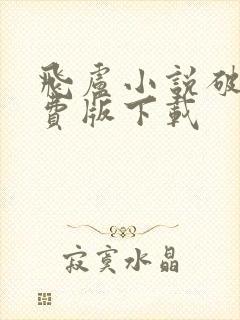 飛盧小說破
費版下載
寂寞水晶